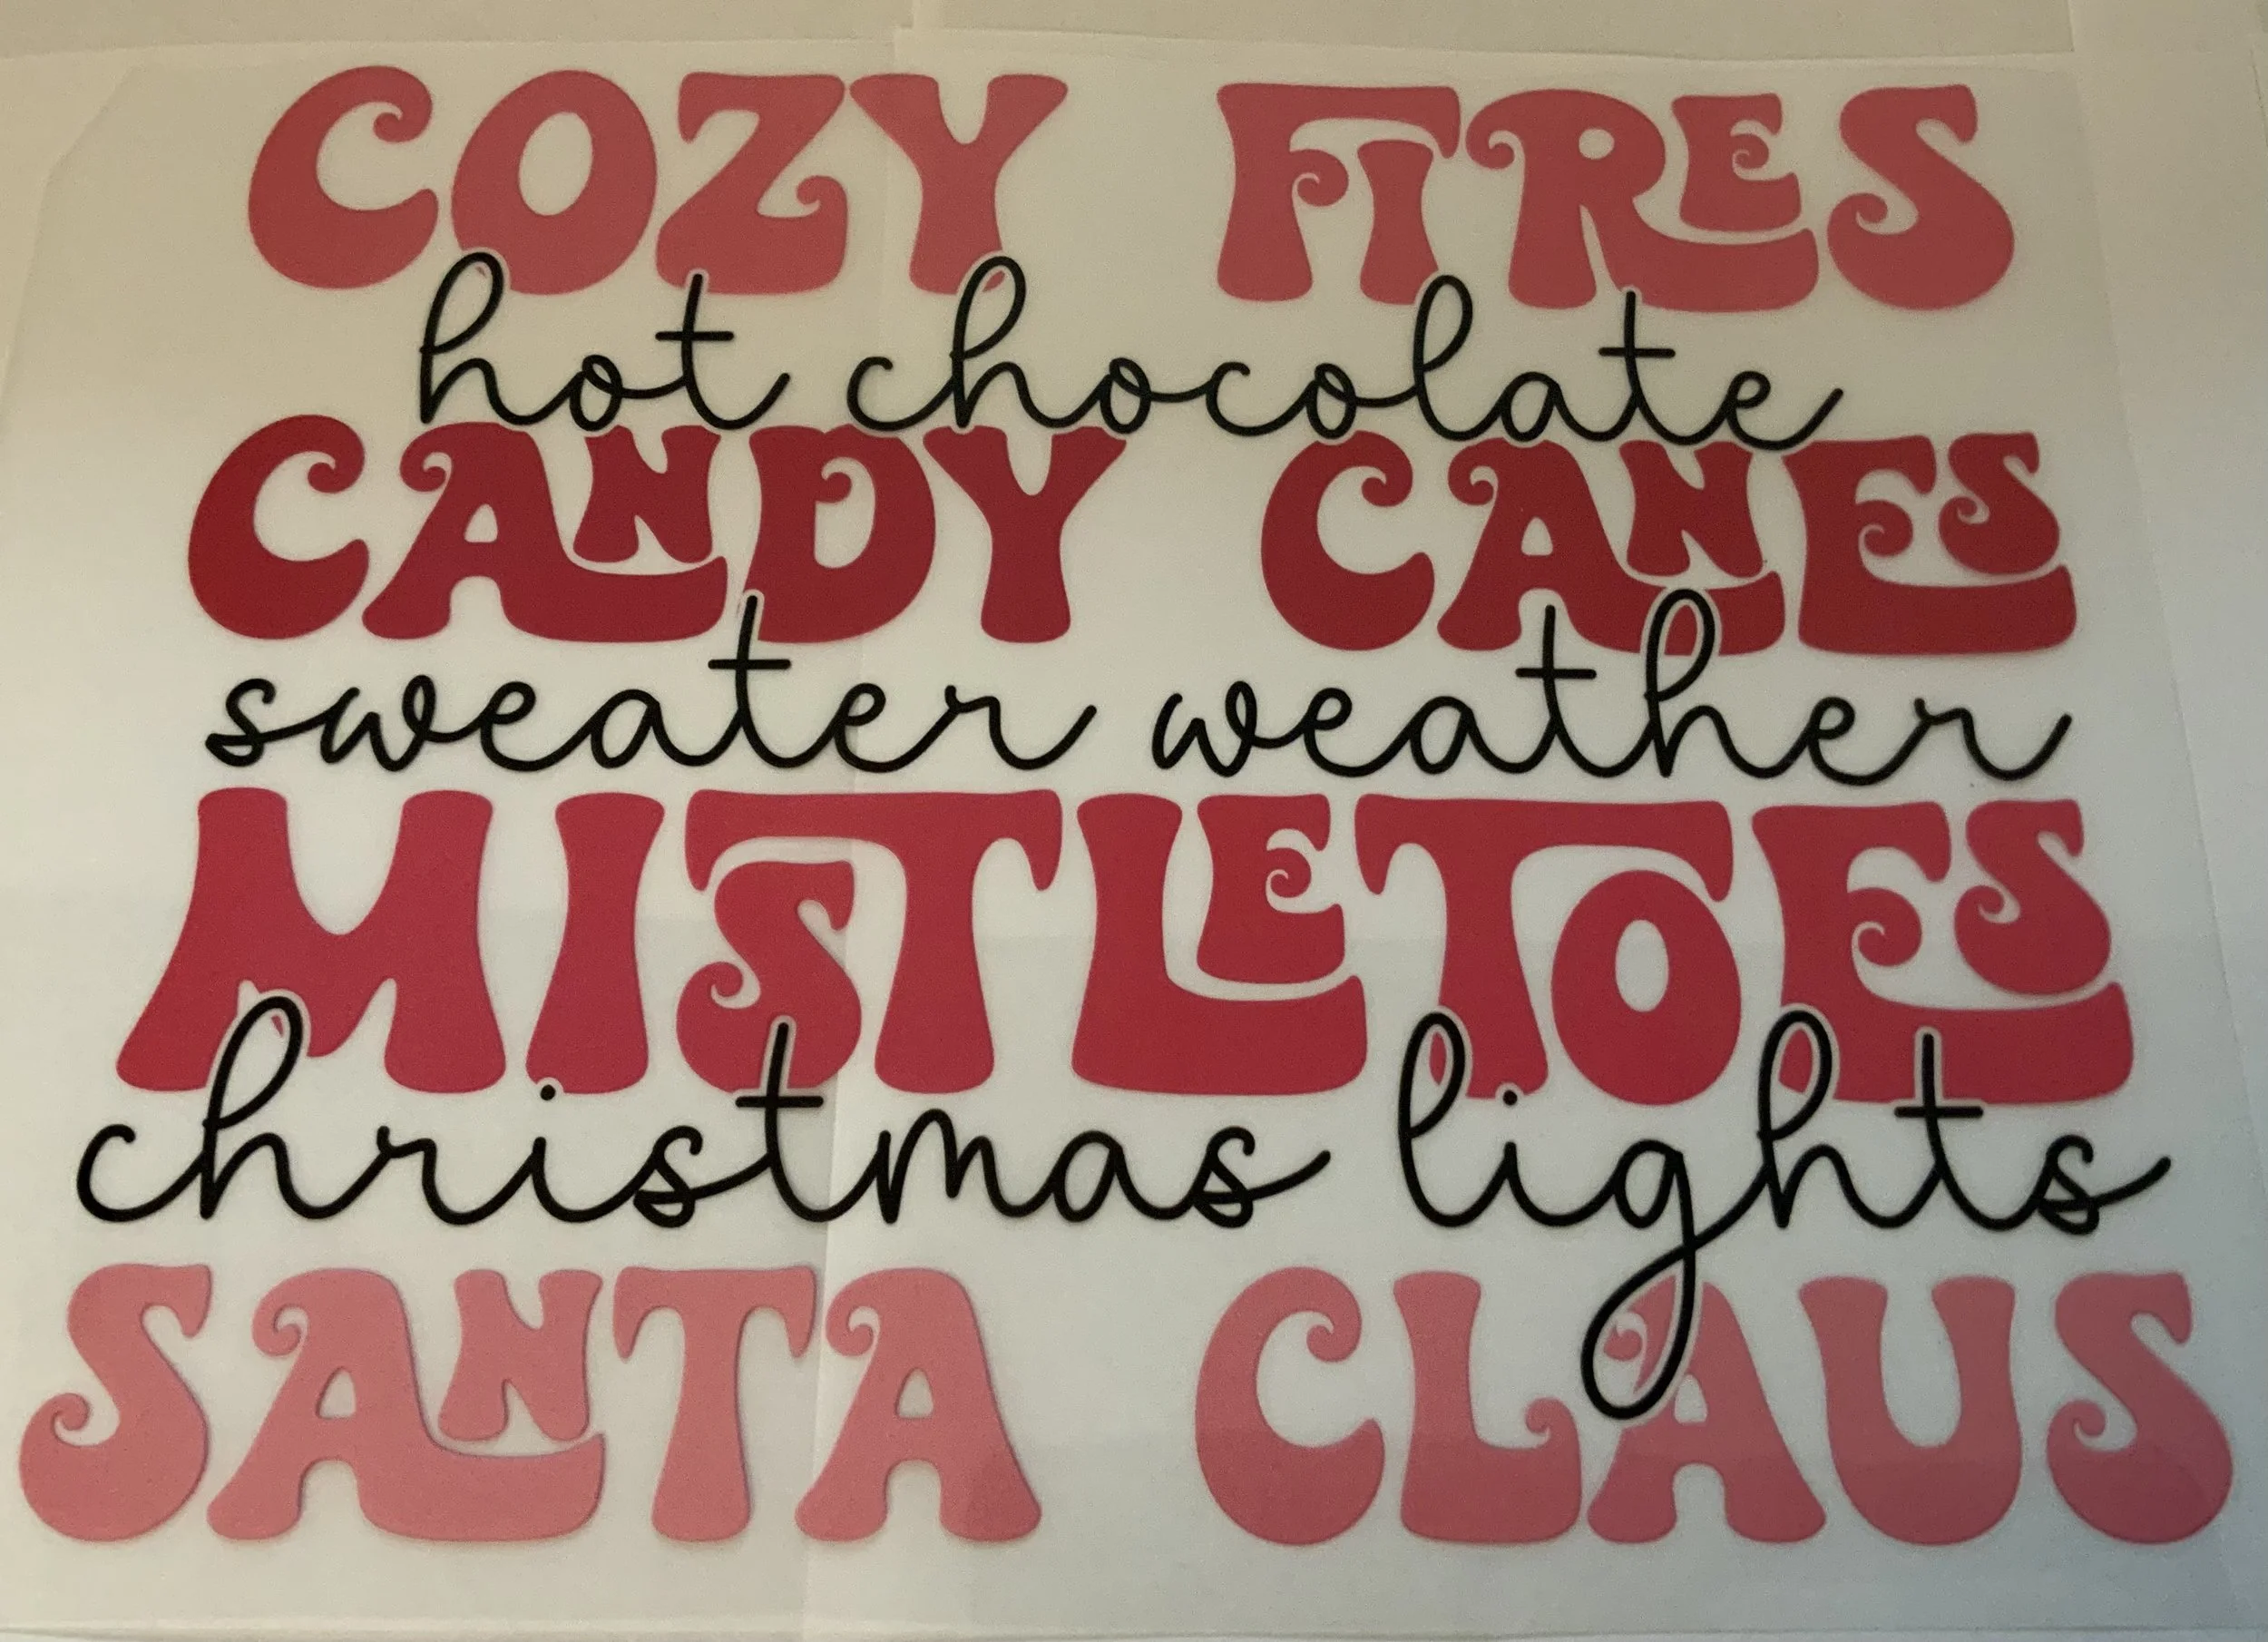 COZY FIRES
hot chocolate
CANDY CANES
sweater weather
MISTLETOES
christmas lights
SANTA CLAUS